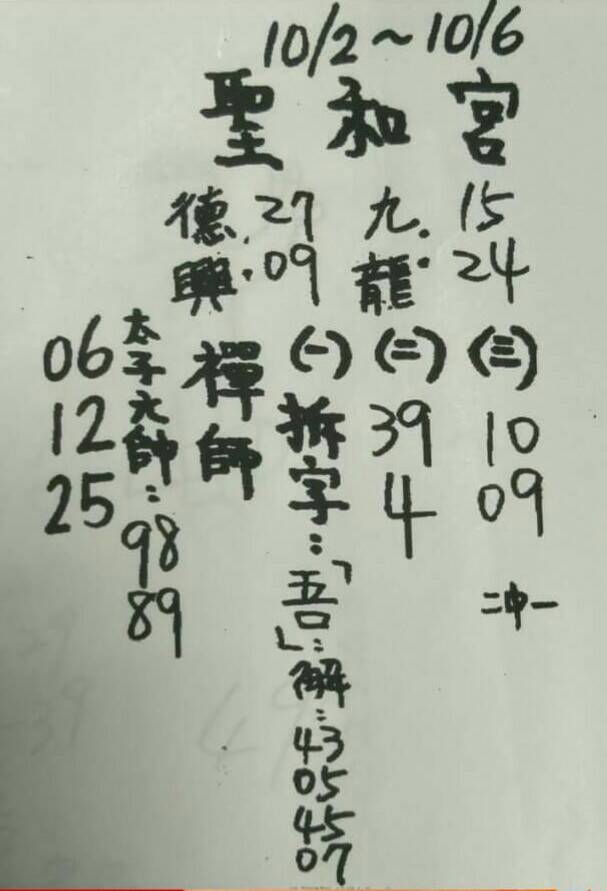 10/2~10/6
聖和宮
九龍:15 24
德興:27 09
(三)10 09 二中一
(二)39 4
(一)拆字:「吾」:解:43 05 45 07
禪師
太子元帥:98 89
06 12 25